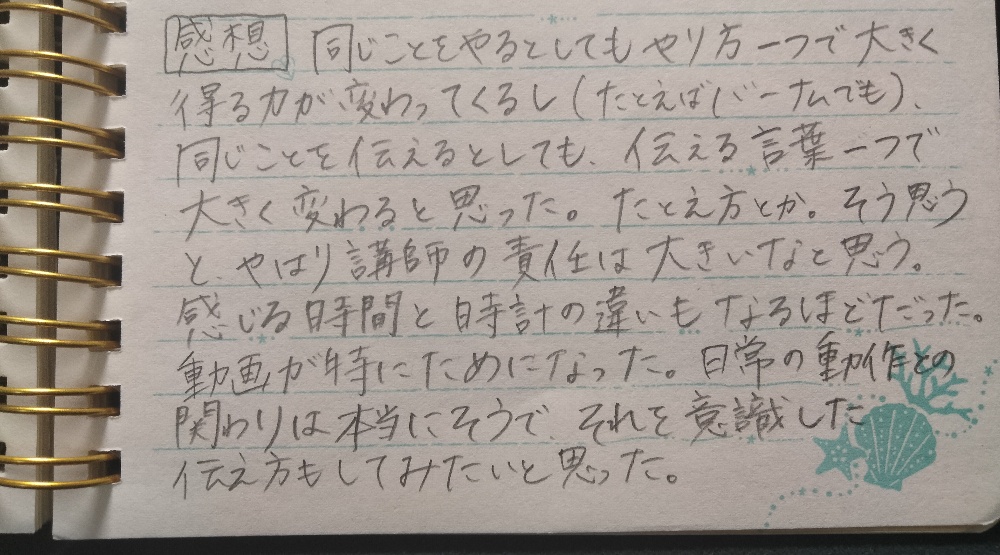 感想 同じことをやるとしてもやり方一つで大きく
得る力が変わってくるし(たとえばバーナムでも)、
同じことを伝えるとしても、伝える言葉一つで
大きく変わると思った。たとえ方とか。そう思う
と、やはり講師の責任は大きいなと思う。
感じる時間と時計の違いもなるほどだった。
動画が特にためになった。日常の動作との
関わりは本当にそうで、それを意識した
伝え方もしてみたいと思った。